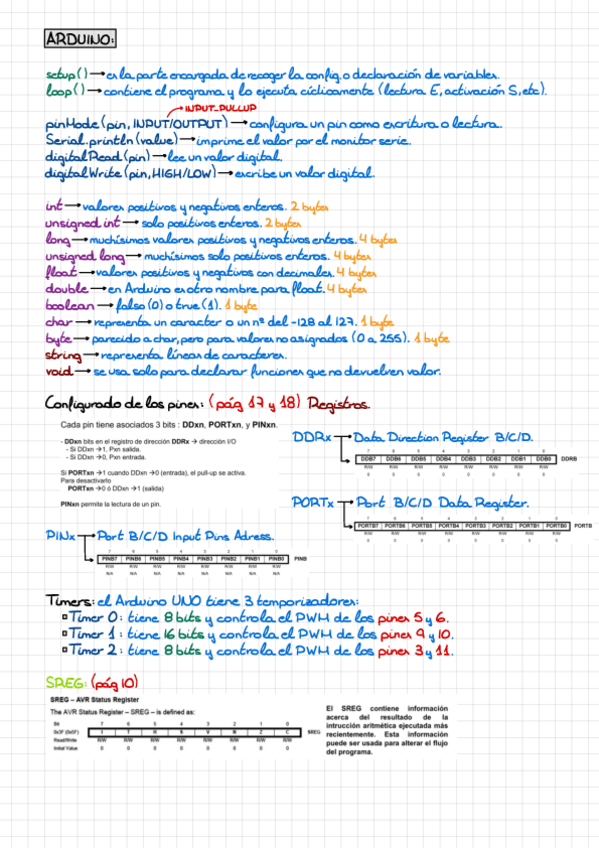 ARDUINO:
setup() → es la parte encargada de recoger la config. o declaración de variables.
loop() → contiene el programa y lo ejecuta cíclicamente (lectura E, activación S, etc).
INPUT_PULLUP
pinMode (pin, INPUT/OUTPUT) → configura un pin como escritura o lectura.
Serial.println (value) → imprime el valor por el monitor serie.
digitalRead (pin) → lee un valor digital.
digitalWrite (pin, HIGH/LOW) → escribe un valor digital.
int → valores positivos y negativos enteros. 2 bytes
unsigned int → solo positivos enteros. 2 bytes
long → muchísimos valores positivos y negativos enteros. 4 bytes
unsigned long → muchísimos solo positivos enteros. 4 bytes
float → valores positivos y negativos con decimales. 4 bytes
double → en Arduino es otro nombre para float. 4 bytes
boolean → falso (0) o true (1). 1 byte
char → representa un caracter o un nº del -128 al 127. 1 byte
byte → parecido a char, pero para valores no asignados (0 a 255). 1 byte
string → representa líneas de caracteres.
void → se usa solo para declarar funciones que no devuelven valor.
Configurado de los pines: (pág 17 y 18) Registros.
Cada pin tiene asociados 3 bits : DDxn, PORTxn, y PINxn.
- DDxn bits en el registro de dirección DDRx → dirección I/O
- Si DDxn →1, Pxn salida.
- Si DDxn →0, Pxn entrada.
Si PORTxn →1 cuando DDxn →0 (entrada), el pull-up se activa.
Para desactivarlo
PORTxn →0 ó DDxn →1 (salida)
PINxn permite la lectura de un pin.
DDRx → Data Direction Register B/C/D.
7 6 5 4 3 2 1 0
DDB7 DDB6 DDB5 DDB4 DDB3 DDB2 DDB1 DDB0 DDRB
R/W R/W R/W R/W R/W R/W R/W R/W
0 0 0 0 0 0 0 0
PORTx → Port B/C/D Data Register.
7 6 5 4 3 2 1 0
PORTB7 PORTB6 PORTB5 PORTB4 PORTB3 PORTB2 PORTB1 PORTB0 PORTB
R/W R/W R/W R/W R/W R/W R/W R/W
0 0 0 0 0 0 0 0
PINx → Port B/C/D Input Pins Adress.
7 6 5 4 3 2 1 0
PINB7 PINB6 PINB5 PINB4 PINB3 PINB2 PINB1 PINB0 PINB
R/W R/W R/W R/W R/W R/W R/W R/W
N/A N/A N/A N/A N/A N/A N/A N/A
Timers: el Arduino UNO tiene 3 temporizadores:
Timer 0: tiene 8 bits y controla el PWM de los pines 5 y 6.
Timer 1: tiene 16 bits y controla el PWM de los pines 9 y 10.
Timer 2: tiene 8 bits y controla el PWM de los pines 3 y 11.
SREG: (pág 10)
SREG – AVR Status Register
The AVR Status Register – SREG – is defined as:
Bit 7 6 5 4 3 2 1 0
0x3F (0x5F) I T H S V N Z C SREG
Read/Write R/W R/W R/W R/W R/W R/W R/W R/W
Initial Value 0 0 0 0 0 0 0 0
El SREG contiene información
acerca del resultado de la
intrucción aritmética ejecutada más
recientemente. Esta información
puede ser usada para alterar el flujo
del programa.